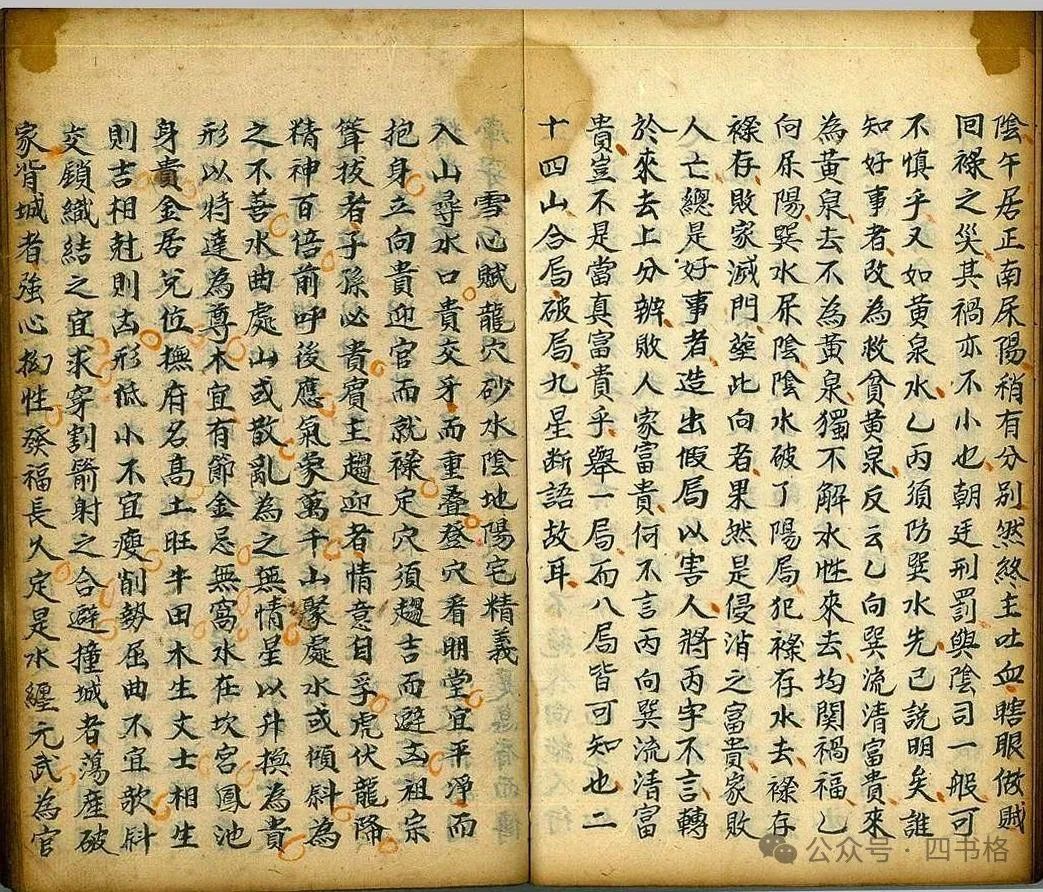 陰午居正南屎陽稍有分别然煞主吐血瞎眼做賊
回祿之災其禍亦不小也朝廷刑罰與陰司一般可
不慎乎又如黄泉水乙丙須防巽水先已説明矣誰
知好事者改為救貧黄泉反云乙向巽流清富貴來
為黄泉去不為黄泉獨不解水性來去均関禍福乙
向屎陽巽水屎陰陰水破了陽局犯祿存水去祿存
祿存敗家滅門塟此向者果然是侵消之富貴家敗
人亡總是好事者造出假局以害人將丙字不言轉
於來去上分辦敗人家富貴何不言丙向巽流清富
貴豈不是當真富貴乎舉一局而八局皆可知也二
十四山合局破局九星断語故耳
雪心賦龍穴砂水陰地陽宅精義
入山尋水口貴交牙而重叠登穴看明堂宜平淨而
抱身立向貴迎官而就祿定穴須趨吉而避凶祖宗
聳拔者子孫必貴賓主趨迎者情意自孚虎伏龍降
精神百倍前呼後應氣象萬千山聚處水或傾斜為
之不善水曲處山或散亂為之無情星以升換為貴
形以特達為尊木宜有節金忌無窩水在坎宮鳳池
身貴金居兌位撫府名高土旺牛田木生文士相生
則吉相尅則凶形低小不宜瘦削勢屈曲不宜欹斜
交鎖織結之宜求穿割箭射之合避撞城者蕩産破
家背城者強心拗性發福長久定是水纏元武為官
公众号·四书格